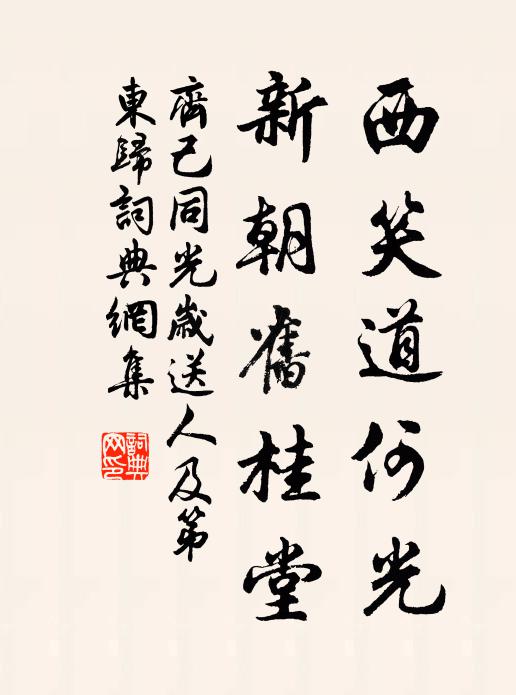 西笑道何光
新朝舊桂堂
齊己同光歲送人及第
東歸詞典網集
詞典网印